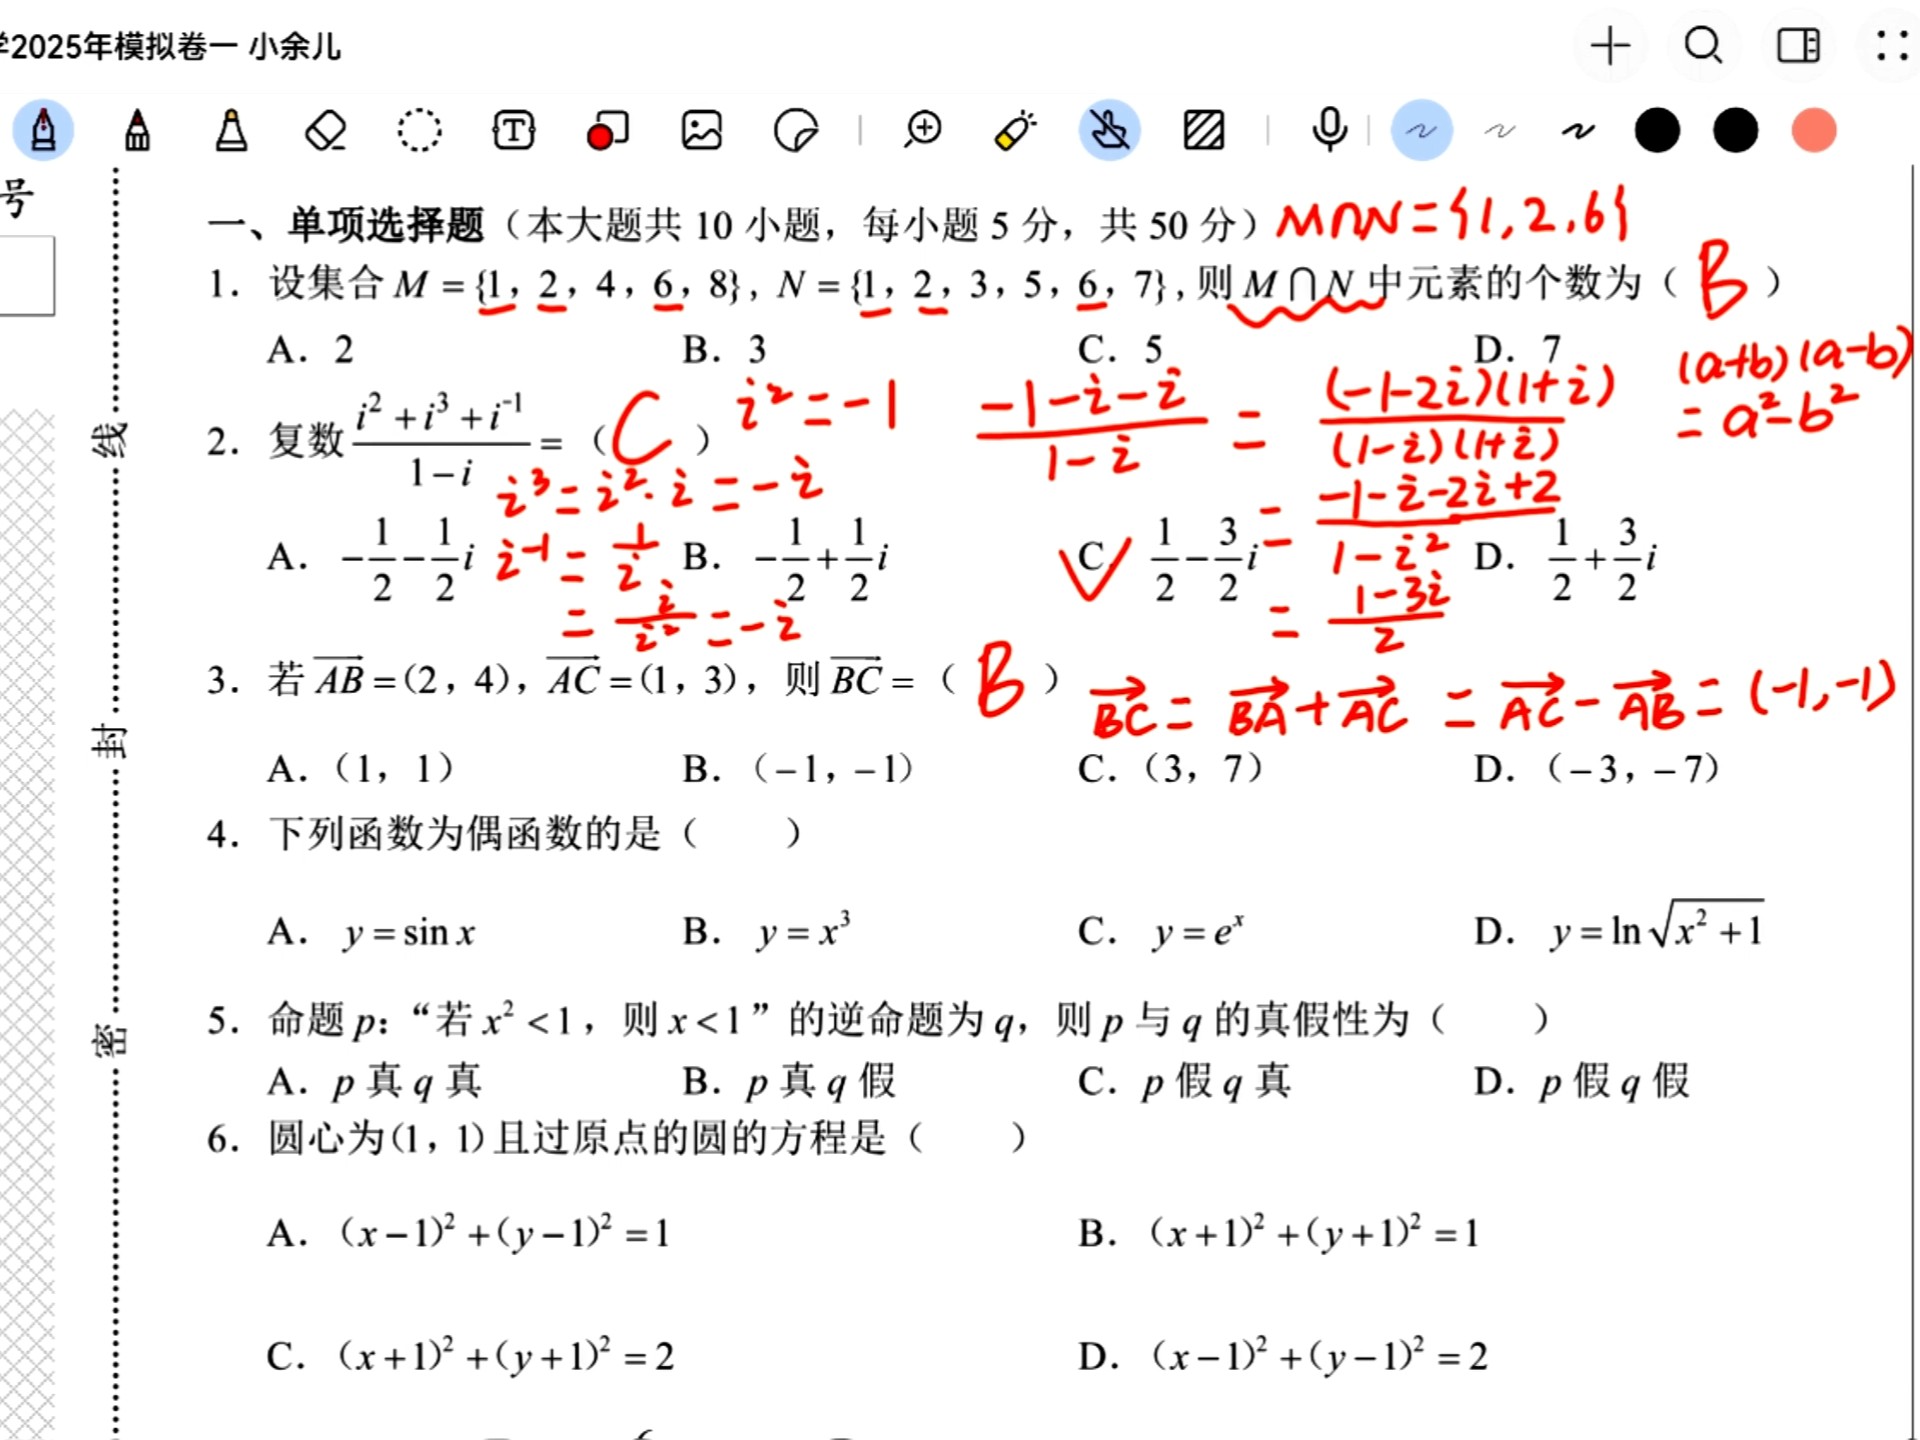 学2025年模拟卷一 小余儿
号
一、单项选择题（本大题共 10 小题，每小题 5 分，共 50 分） M∩N={1,2,6}
1. 设集合 M = {1，2，4，6，8}，N = {1，2，3，5，6，7}，则 M ∩ N 中元素的个数为（ B ）
A. 2 B. 3 C. 5 D. 7
(a+b)(a-b)
= a²-b²
2. 复数 (i² + i³ + i⁻¹)/(1 − i) = （ C ）
i² = -1
i³ = i²·i = -i
i⁻¹ = 1/i
= i/i² = -i
(-1-i-i)/(1-i) = (-1-2i)(1+i)/(1-i)(1+i)
= (-1-i-2i+2)/(1-i²)
= (1-3i)/2
A. −1/2 − 1/2 i B. −1/2 + 1/2 i C. 1/2 − 3/2 i D. 1/2 + 3/2 i
3. 若 \overrightarrow{AB} = (2，4)，\overrightarrow{AC} = (1，3)，则 \overrightarrow{BC} = （ B ） \overrightarrow{BC} = \overrightarrow{BA} + \overrightarrow{AC} = \overrightarrow{AC} - \overrightarrow{AB} = (-1,-1)
A.（1，1） B.（−1，−1） C.（3，7） D.（−3，−7）
4. 下列函数为偶函数的是（ ）
A. y = sin x B. y = x³ C. y = eˣ D. y = ln √(x² + 1)
5. 命题 p：“若 x² < 1，则 x < 1”的逆命题为 q，则 p 与 q 的真假性为（ ）
A. p 真 q 真 B. p 真 q 假 C. p 假 q 真 D. p 假 q 假
6. 圆心为(1，1)且过原点的圆的方程是（ ）
A. (x − 1)² + (y − 1)² = 1 B. (x + 1)² + (y + 1)² = 1
C. (x + 1)² + (y + 1)² = 2 D. (x − 1)² + (y − 1)² = 2
线
封
密